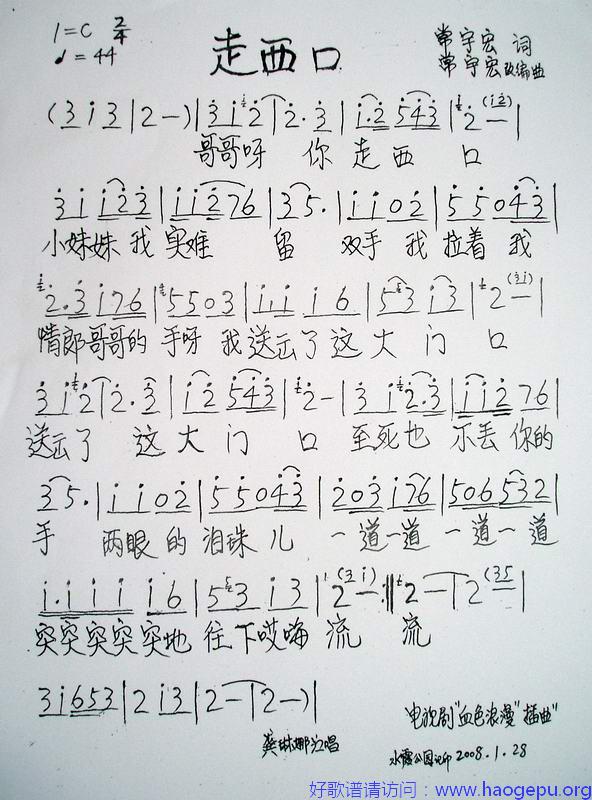 1=C 2/4
♩=44
走西口
常宇宏 词
常宇宏改编曲
(3 i 3 | 2 — ) | 3 i 2 | 2 · 3 | i · 2 5 4 3 | 2 — |
哥哥呀 你 走 西 口
3 i i 2 3 | i i 2 7 6 | 3 5 · | i i 0 2 | 5 5 0 4 3 |
小妹妹 我 实难 留 双手 我 拉着 我
2 · 3 i 7 6 | 5 5 0 3 | i · i i 6 | 5 3 i 3 | 2 — |
情郎哥哥的 手呀 我 送出了 这 大 门 口
3 i 2 | 2 · 3 | i 2 5 4 3 | 2 — | 3 i 2 · 3 | i i 2 7 6 |
送出了 这 大 门 口 至死也 不丢 你的
3 5 · | i i 0 2 | 5 5 0 4 3 | 2 0 3 i 7 6 | 5 0 6 5 3 2 |
手 两眼 的 泪珠 儿 一道一道 一道一道
i · i i i i 6 | 5 3 i 3 | 2 — :‖ 2 — | 2 (3 5
突突突突突地 往下哎嗨 流 流
3 i 6 5 3 | 2 i 3 | 2 — | 2 — ) |
电视剧"血色浪漫"插曲"
龚琳娜演唱
2008.1.28
好歌谱请访问：www.haogepu.org